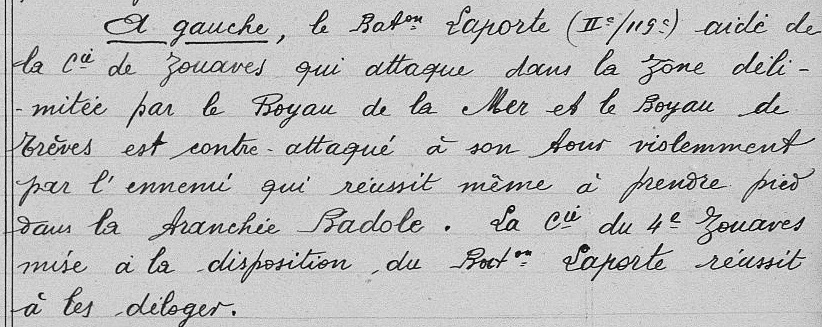 A gauche, le Bat.on Laporte (IIe/119e) aidé de
la Cie de Zouaves qui attaque dans la zone déli-
-mitée par le Boyau de la Mer et le Boyau de
Trèves est contre-attaqué à son tour violemment
par l'ennemi qui réussit même à prendre pied
dans la tranchée Badole. La Cie du 4e Zouaves
mise à la disposition du Baton Laporte réussit
à les déloger.